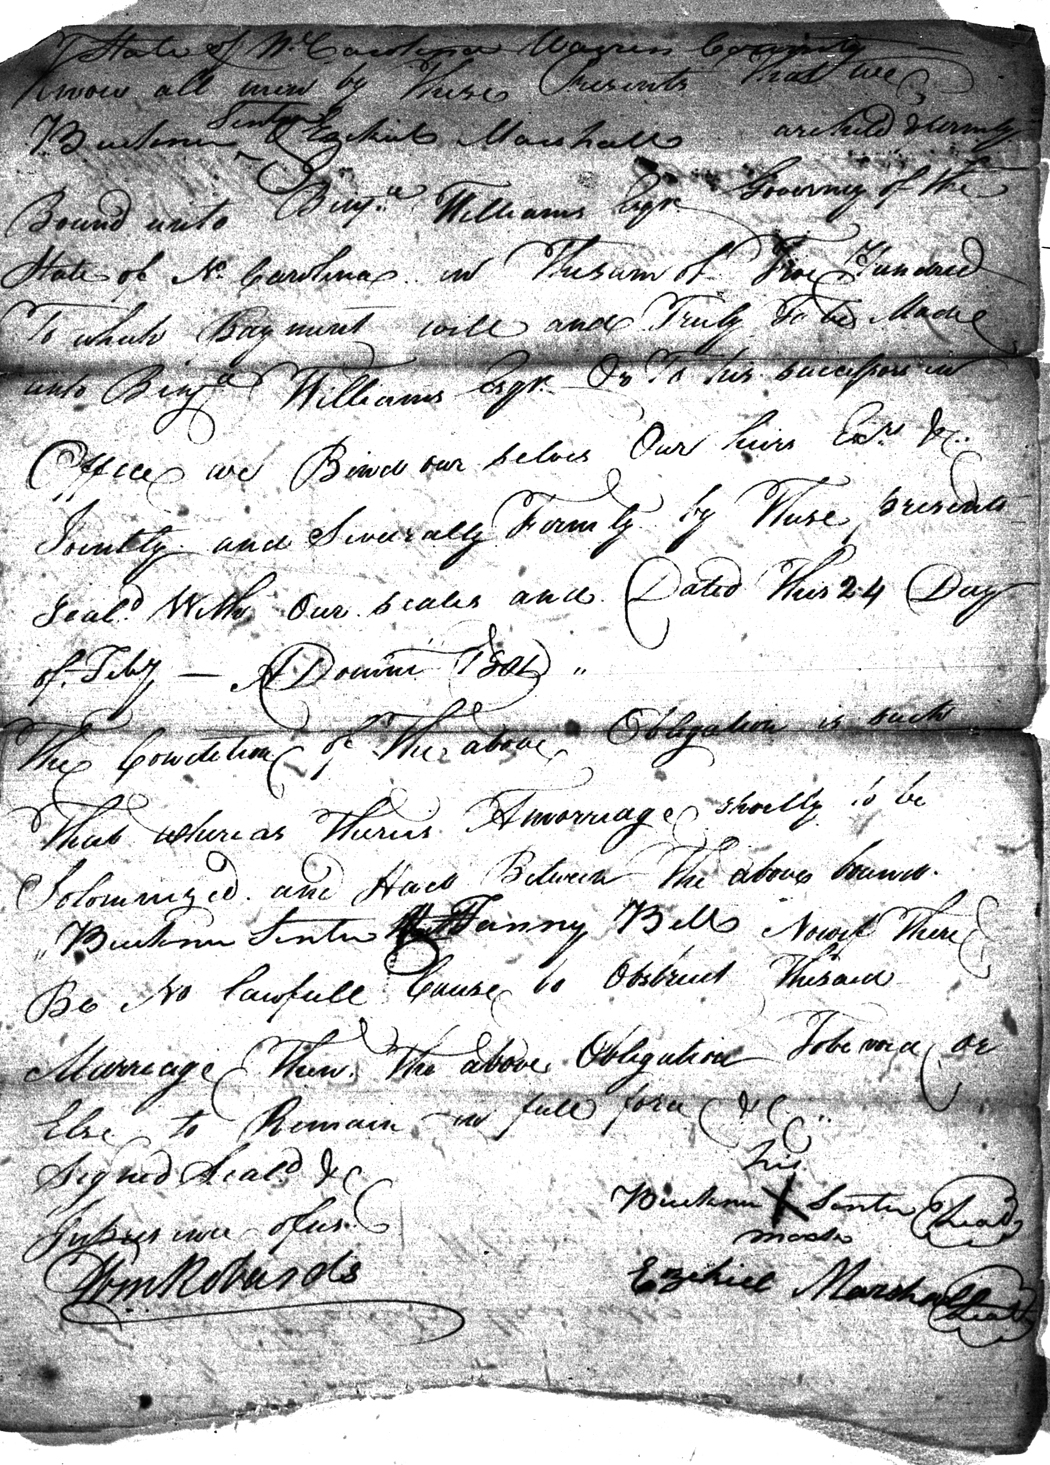 State of No. Carolina Warren County
Know all men by These Presents That we
Senter
Bucknur & Ezekiel Marshall are held & firmly
Bound unto Benja. Williams Esqr. Governer of the
State of No. Carolina in The sum of Five Hundred
To which Payment will and Truly To be Made
unto Benja Williams Esqr. Or To his successors in
Office we Bind our selves Our heirs Exrs. &c.
Jointly and Severally Firmly by These presents
Seald. With Our seales and Dated This 24 Day
of Feby — A Domini
The Condition of The above Obligation is such
That where as Theris A marriage shortly to be
Solomnized and Had Between The above bound
Bucknur Senter Fanny Bell Now if There
Be No Lawfull Cause to Obstruct The said
Marriage Then The above Obligation To be void or
Else to Remain in full force &c
Signed Seald. & c
his
In presence of us
Bucknur X Senter Seal
mark
Wm Robards
Ezekiel Marshall Seal